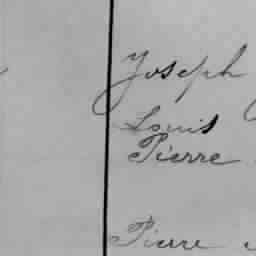 Joseph
Louis
Pierre
Pierre